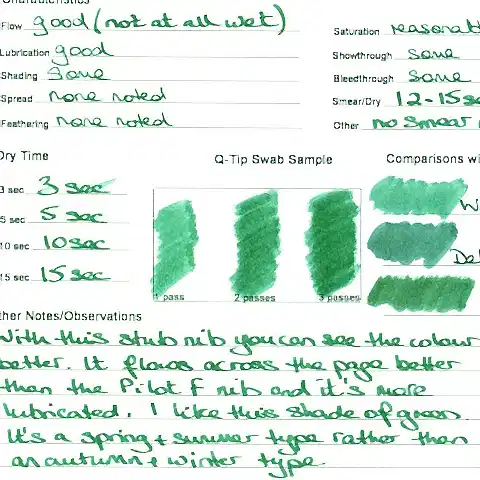 Characteristics
Flow good (not at all wet)
Saturation
Lubrication good
Showthrough some
Shading some
Bleedthrough some
Spread none noted
Smear/Dry 12-15
Feathering none noted
Other no smear
Dry Time
Q-Tip Swab Sample
Comparisons
3 sec 3 sec
5 sec 5 sec
10 sec 10 sec
15 sec 15 sec
1 pass 2 passes 3 passes
Other Notes/Observations
With this stub nib you can see the colour
better. It flows across the page better
than the Pilot F nib and it's more
lubricated. I like this shade of green
It's a spring + summer type rather than
an autumn + winter type